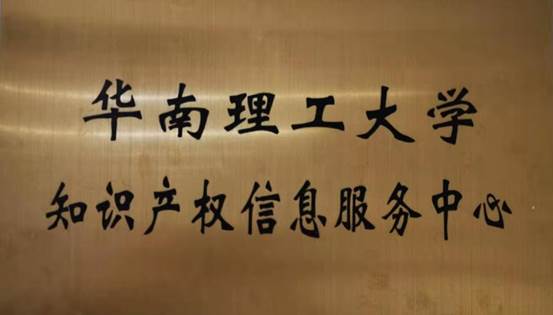 华南理工大学
知识产权信息服务中心